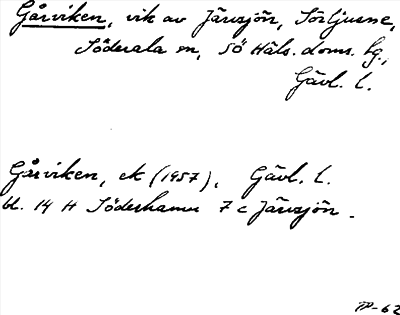 Gårviken, vik av Järvsjön, Sörljusne,
Söderala sn, Sö Häls. doms. tg.,
Gävl. l.
Gårviken, ek (1957), Gävl. l.
bl. 14 H Söderhamn 7 c Järvsjön.
TP-62